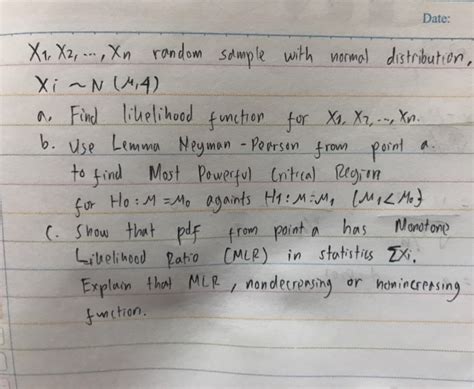 Date:
X1, X2, ..., Xn random sample with normal distribution,
Xi ~ N (μ,4)
a. Find likelihood function for X1, X2, ..., Xn.
b. Use Lemma Neyman - Pearson from point a.
to find Most Powerful Critical Region
for H0 : μ = μ0 againts H1 : μ = μ1 (μ1 < μ0)
c. Show that pdf from point a has Monotone
Likelihood Ratio (MLR) in statistics ΣXi.
Explain that MLR, nondecreasing or nonincreasing
function.